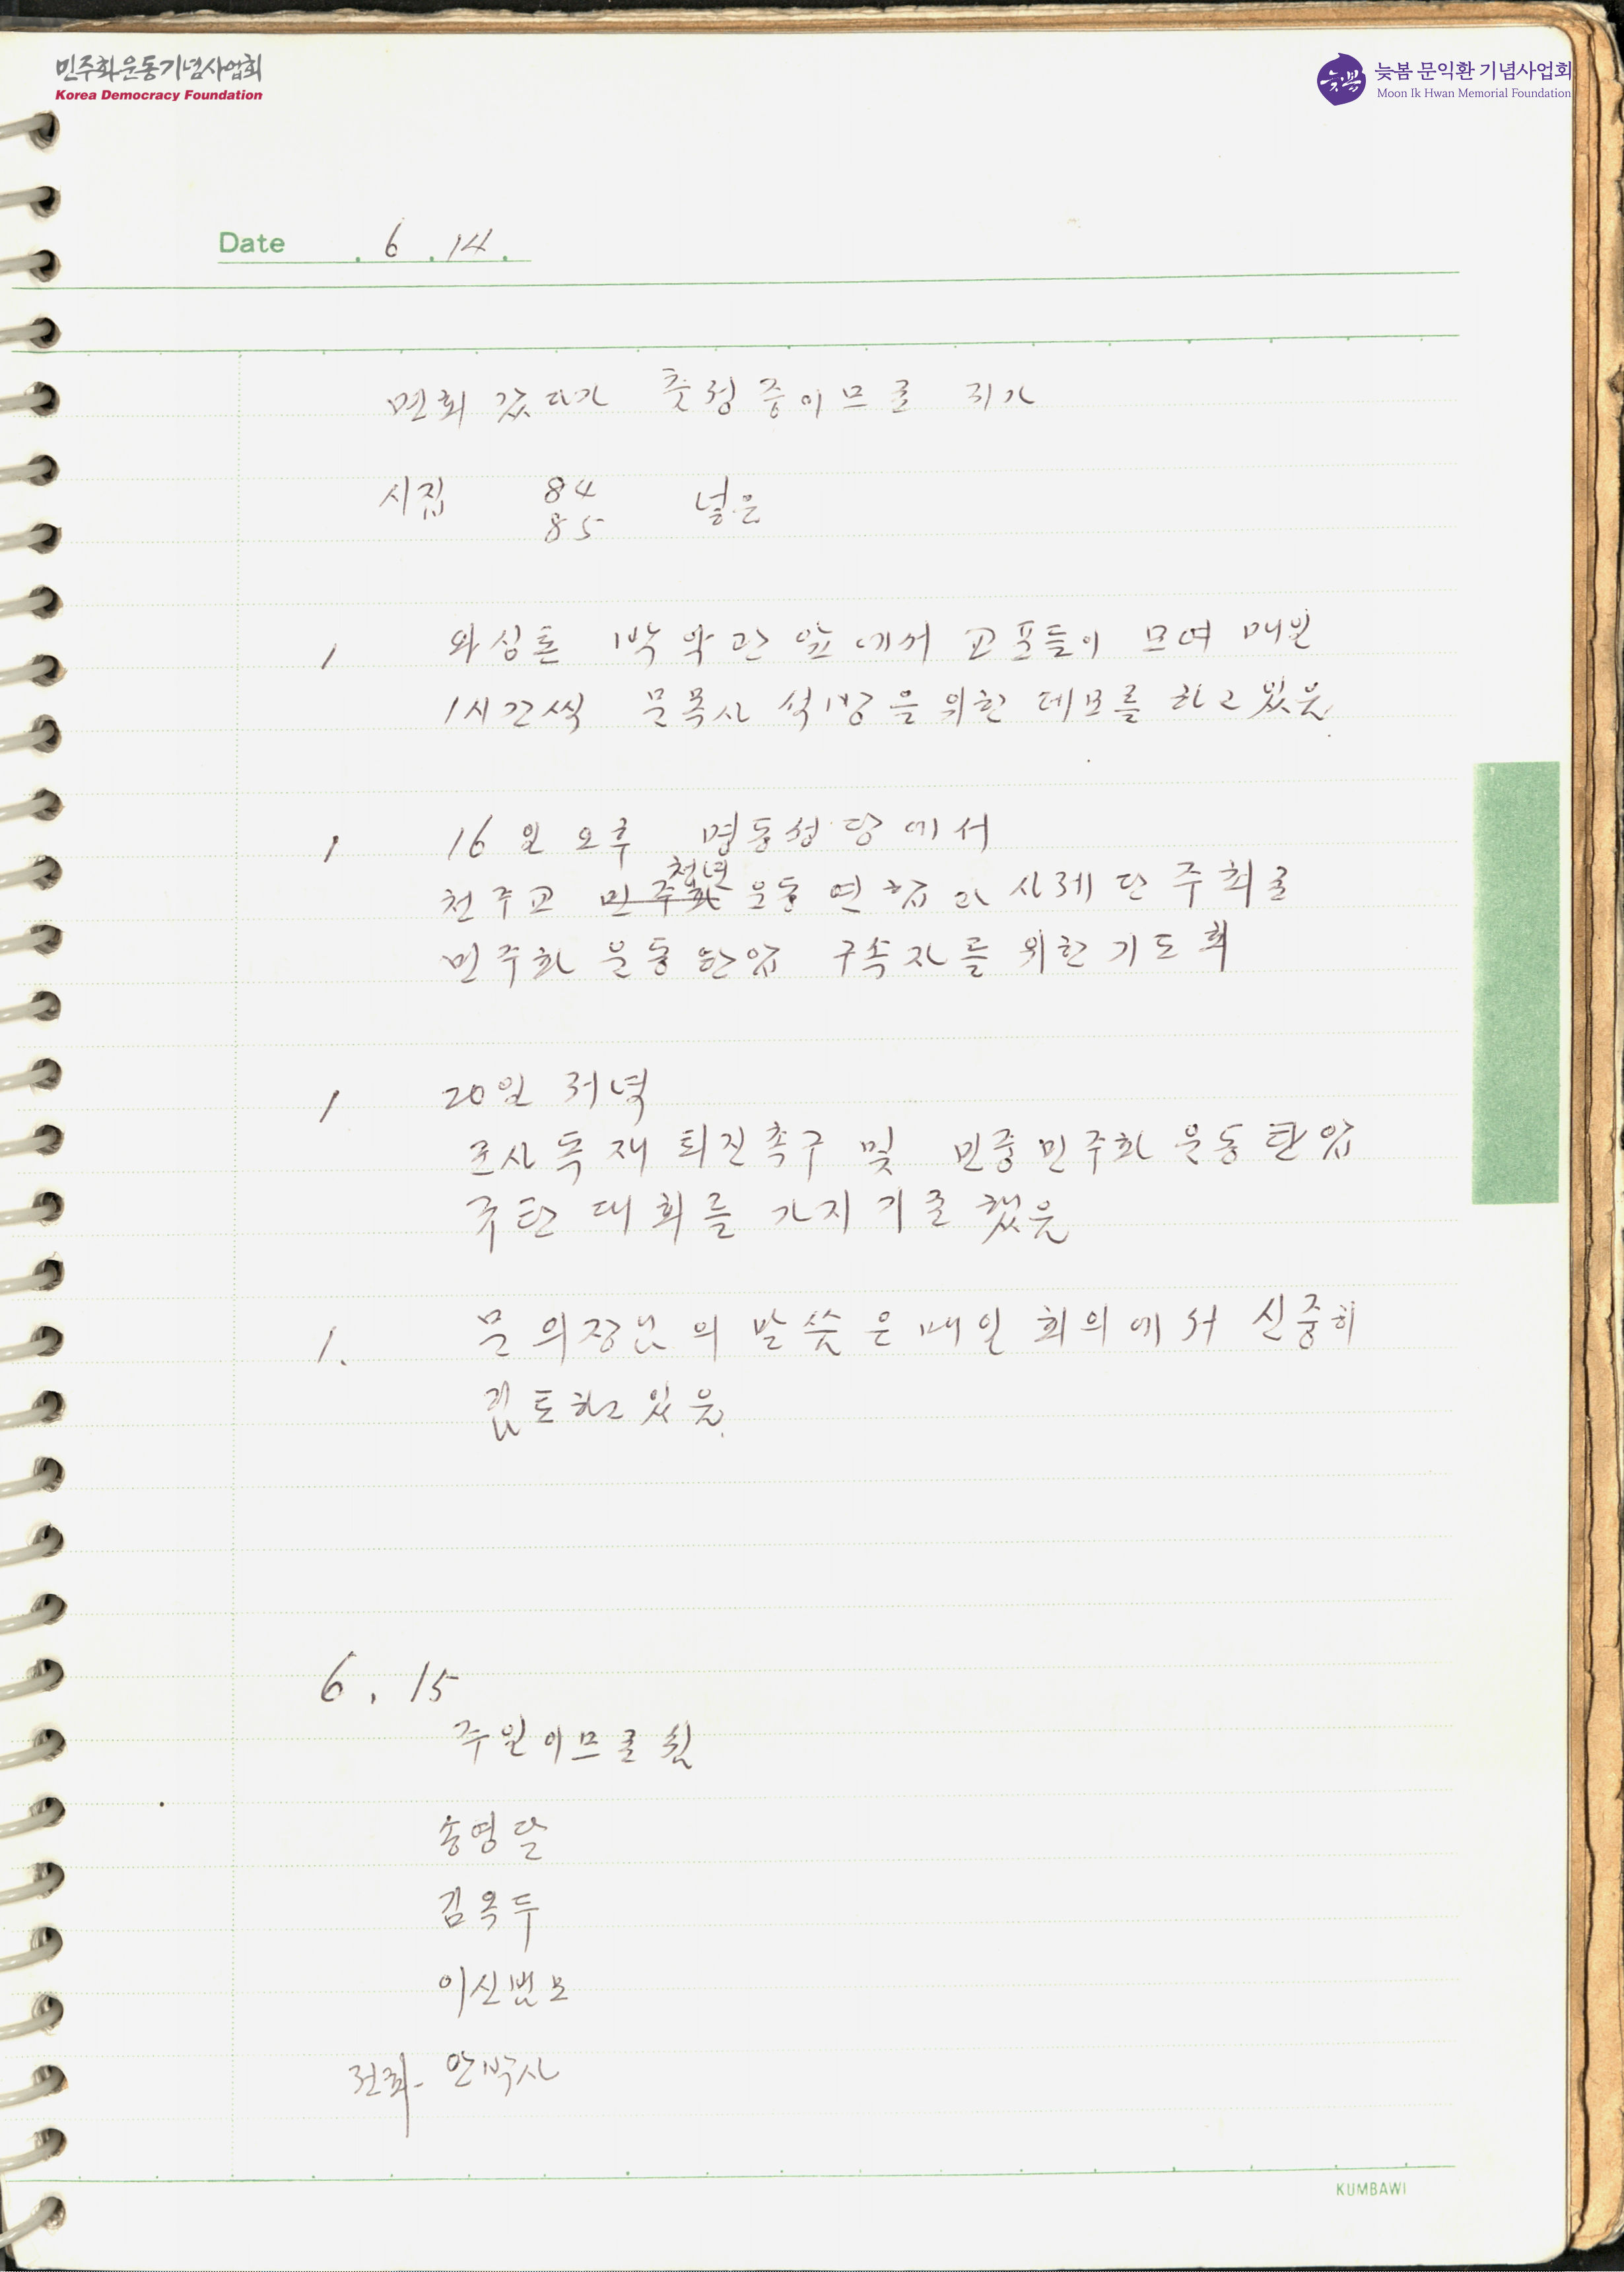 민주화운동기념사업회
Korea Democracy Foundation
늦봄 문익환 기념사업회
Moon Ik Hwan Memorial Foundation
늦봄
Date . 6 . 14 .
면회 갔다가 출정중이므로
시집 84 넣음
85
1 와싱톤 박 관 앞에서 교포들이 모여 매일
1시간씩 문목사 석방을 위한 데모를 하고 있음.
1 16일 오후 명동성당에서
청년
천주교 민주화 운동 연합과 사제단 주최로
민주화 운동 탄압 구속자를 위한 기도회
1 20일 저녁
군사독재 퇴진촉구 및 민중민주화 운동 탄압
규탄 대회를 가지기로 했음
1. 문 의장님의 말씀은 매일 회의에서 신중히
검토하고 있음.
6. 15
주일이므로 쉼
송영달
김옥두
이신범 모
전화- 안박사
KUMBAWI